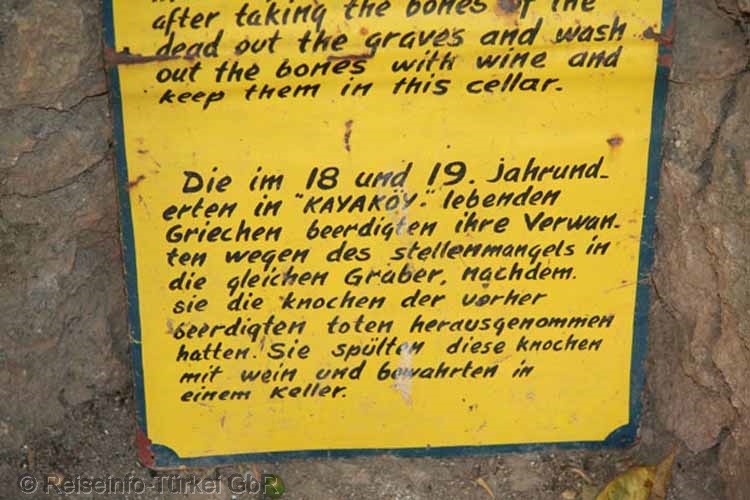 after taking the bones of the
dead out the graves and wash
out the bones with wine and
keep them in this cellar.
Die im 18 und 19. jahrund_
erten in "KAYAKÖY." lebenden
Griechen beerdigten ihre Verwan-
ten wegen des stellenmangels in
die gleichen Gräber, nachdem.
sie die knochen der vorher
beerdigten toten herausgenommen
hatten. Sie spülten diese knochen
mit wein und bewahrten in
einem Keller.
© Reiseinfo-Türkei GbR